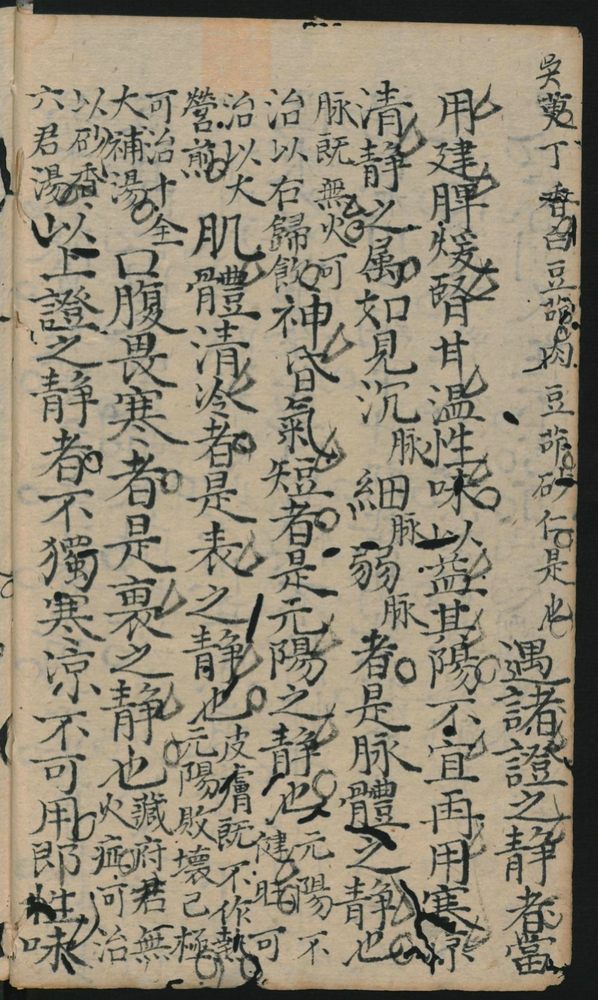 吳萸丁香白豆蔻肉豆蔻砂仁是也
遇諸證之静者當
用建脾煖腎甘温性味以益其陽不宜再用寒凉
清静之属如見沉脉細脉弱脉者是脉體之静也
脉既無火可
治以右歸飲
神昏氣短者是元陽之静也
元陽不
健旺可
治以大
營煎
肌體清冷者是表之静也
皮膚既不作熱
元陽敗壞已極
可治十全
大補湯
口腹畏寒者是裏之静也
藏府君無
火症可治
以砂香
六君湯
以上證之静者不獨寒凉不可用即性味